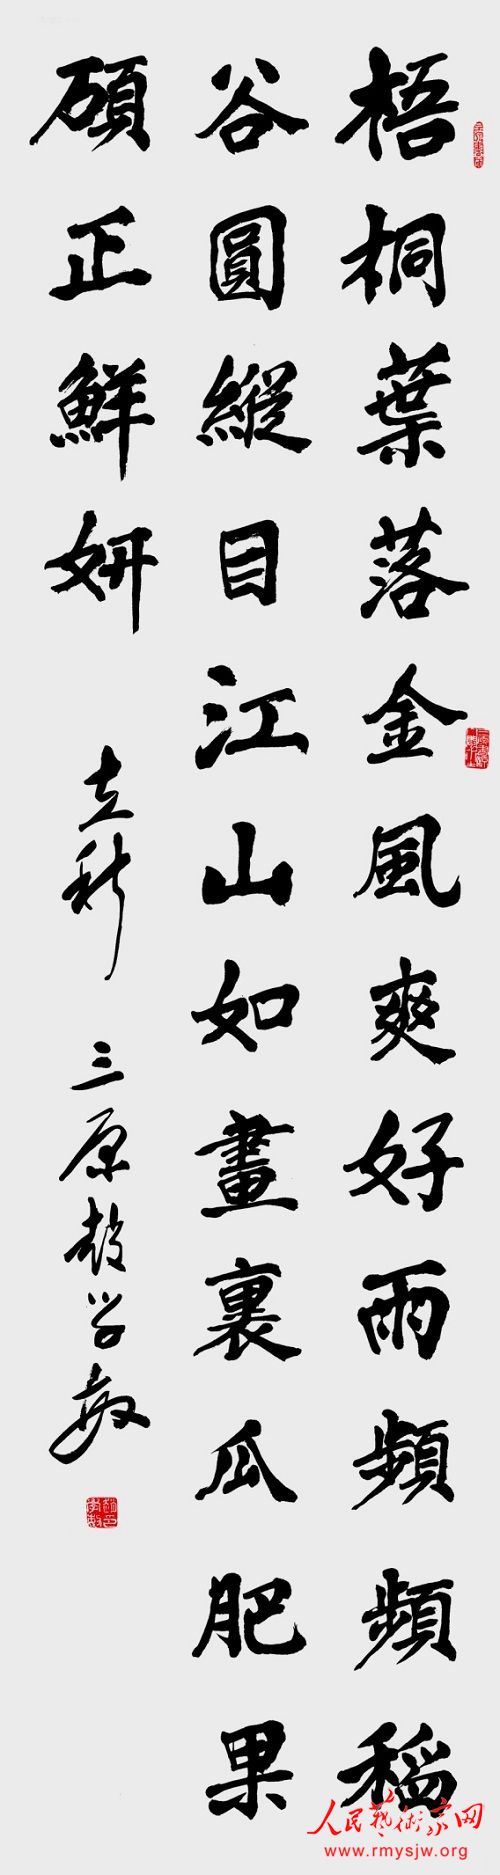 梧桐葉落金風爽好雨頻頻稻
谷圓縱目江山如畫裏瓜肥果
碩正鮮妍
立秋 三原趙学敏
人民藝術家网
www.rmysjw.org